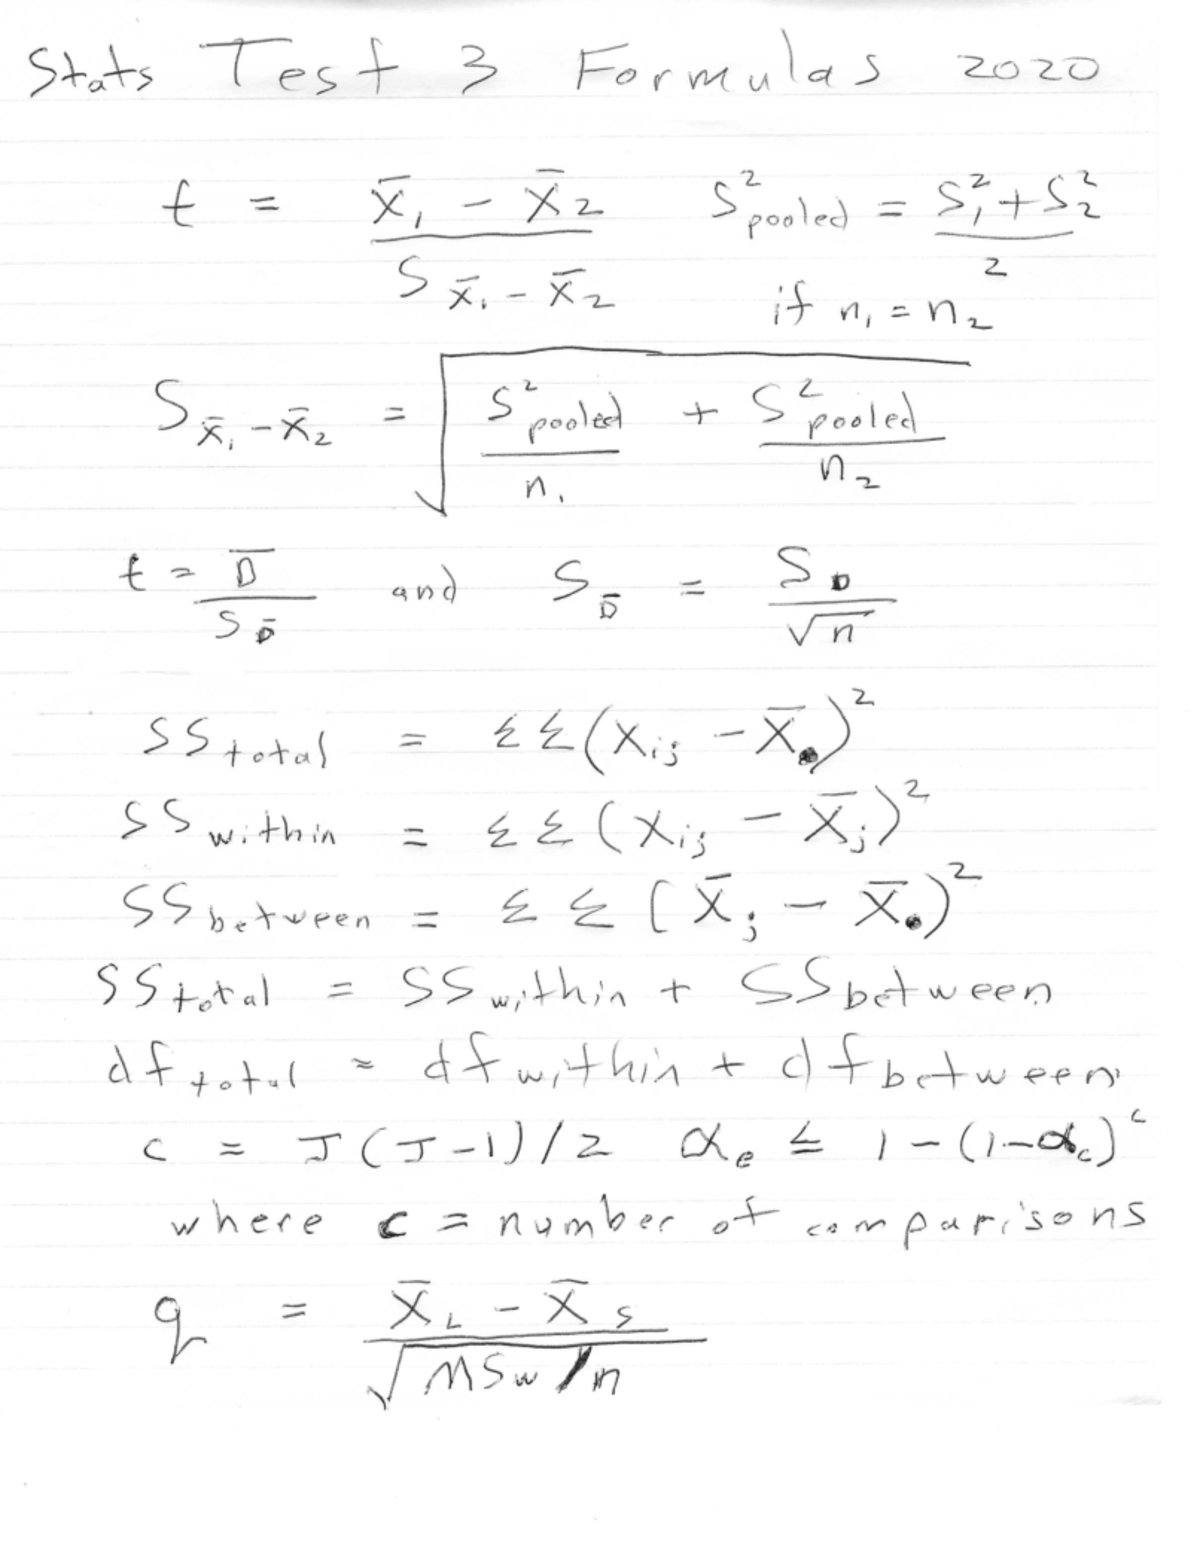 Stats Test 3 Formulas 2020
t = (X̄₁ - X̄₂) / S_X̄₁-X̄₂    S²pooled = (S₁² + S₂²) / 2
if n₁ = n₂
S_X̄₁-X̄₂ = √(S²pooled / n₁ + S²pooled / n₂)
t = D̄ / S_D̄ and S_D̄ = S_D / √n
SS total = ΣΣ(Xij - X̄•)²
SS within = ΣΣ(Xij - X̄j)²
SS between = ΣΣ(X̄j - X̄•)²
SS total = SS within + SS between
df total = df within + df between
c = J(J-1)/2 αe ≤ 1-(1-αc)^c
where c = number of comparisons
q = (X̄L - X̄S) / √(MSw/n)